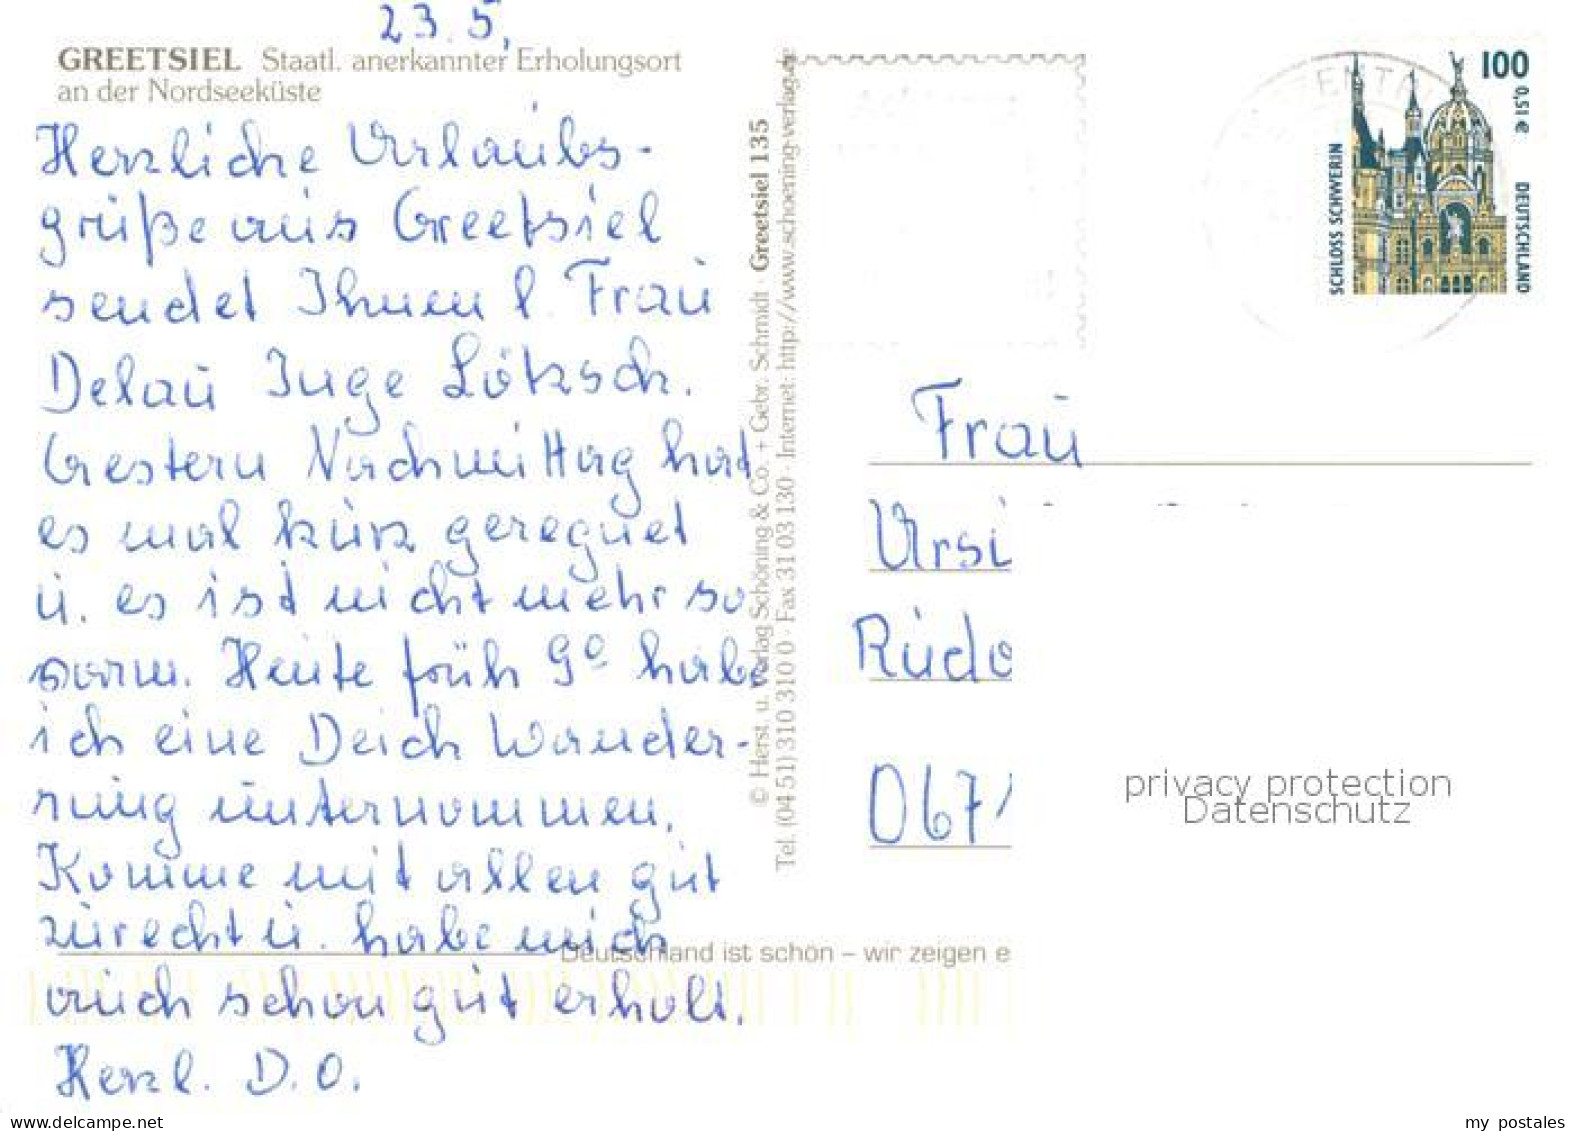 23.5.
GREETSIEL Staatl. anerkannter Erholungsort
an der Nordseeküste
Herzliche Urlaubs-
grüße aus Greetsiel
sendet Ihnen l. Frau
Delau Inge Lötzsch.
Gestern Nachmittag hat
es mal kurz geregnet
u. es ist nicht mehr so
warm. Heute früh 9° habe
ich eine Deich Wander-
rung unternommen.
Komme mit allen gut
zurecht u. habe mich
auch schon gut erholt.
Herzl. D.O.
© Herst. u. Verlag Schöning & Co. + Gebr. Schmidt · Greetsiel 135
Tel. (04 51) 310 310 0 · Fax 31 03 130 · Internet: http://www.schoening-verlag.de
Deutschland ist schön – wir zeigen e
100
0,51 €
SCHLOSS SCHWERIN
DEUTSCHLAND
Frau
Ursu
Rudo
067
privacy protection
Datenschutz
www.delcampe.net
my_postales